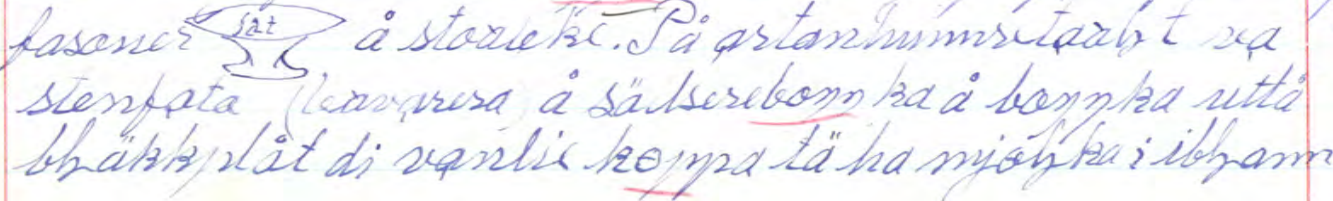 fasoner fat å storleke. På artanhunnrataalt va
stenfata (leravarera) å sälserebonnka å bonnka uttå
bhäkkplåt di vanlie koppa tä ha mjöhka i ibhann